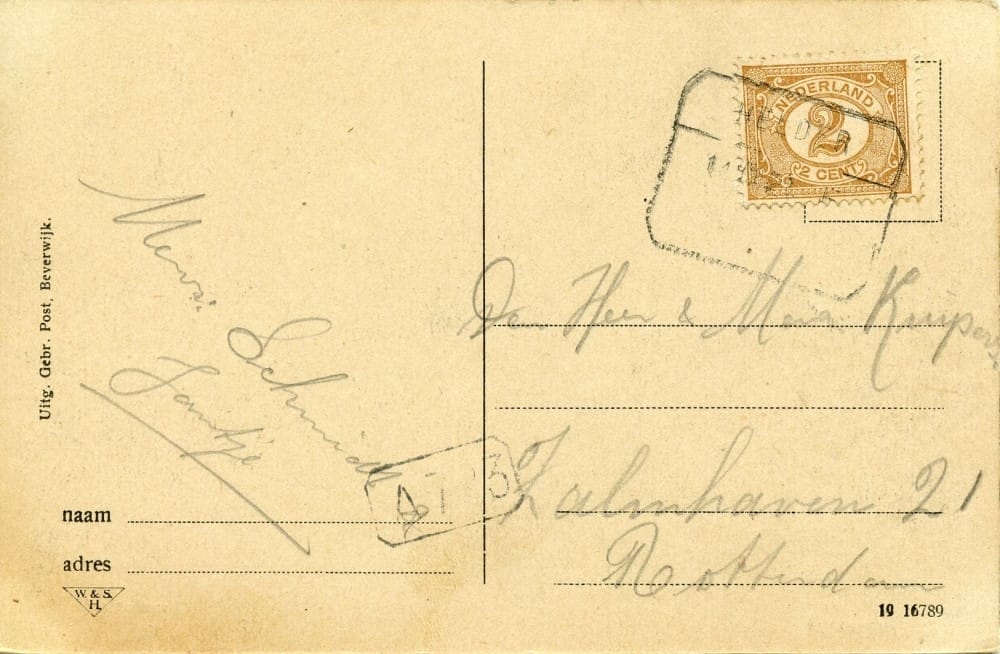 Uitg. Gebr. Post, Beverwijk.
Schmidt
Jantje
naam
adres
W. & S.
H.
NEDERLAND
2
2 CENT
Den Heer & Mevr. Kuipers
Zalmhaven 21
Rotterdam
19 16789